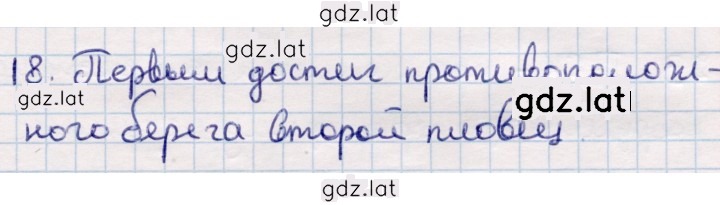 gdz.lat
gdz.lat
18. Первым достиг противополож-
gdz.lat
gdz.lat
ного берега второй пловец.
gdz.lat